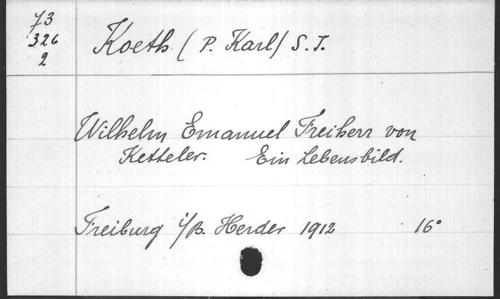 73
326
2
Koeth (P. Karl) S. J.
Wilhelm Emanuel Freiherr von
Ketteler. Ein Lebensbild.
Freiburg i/B. Herder 1912 16°